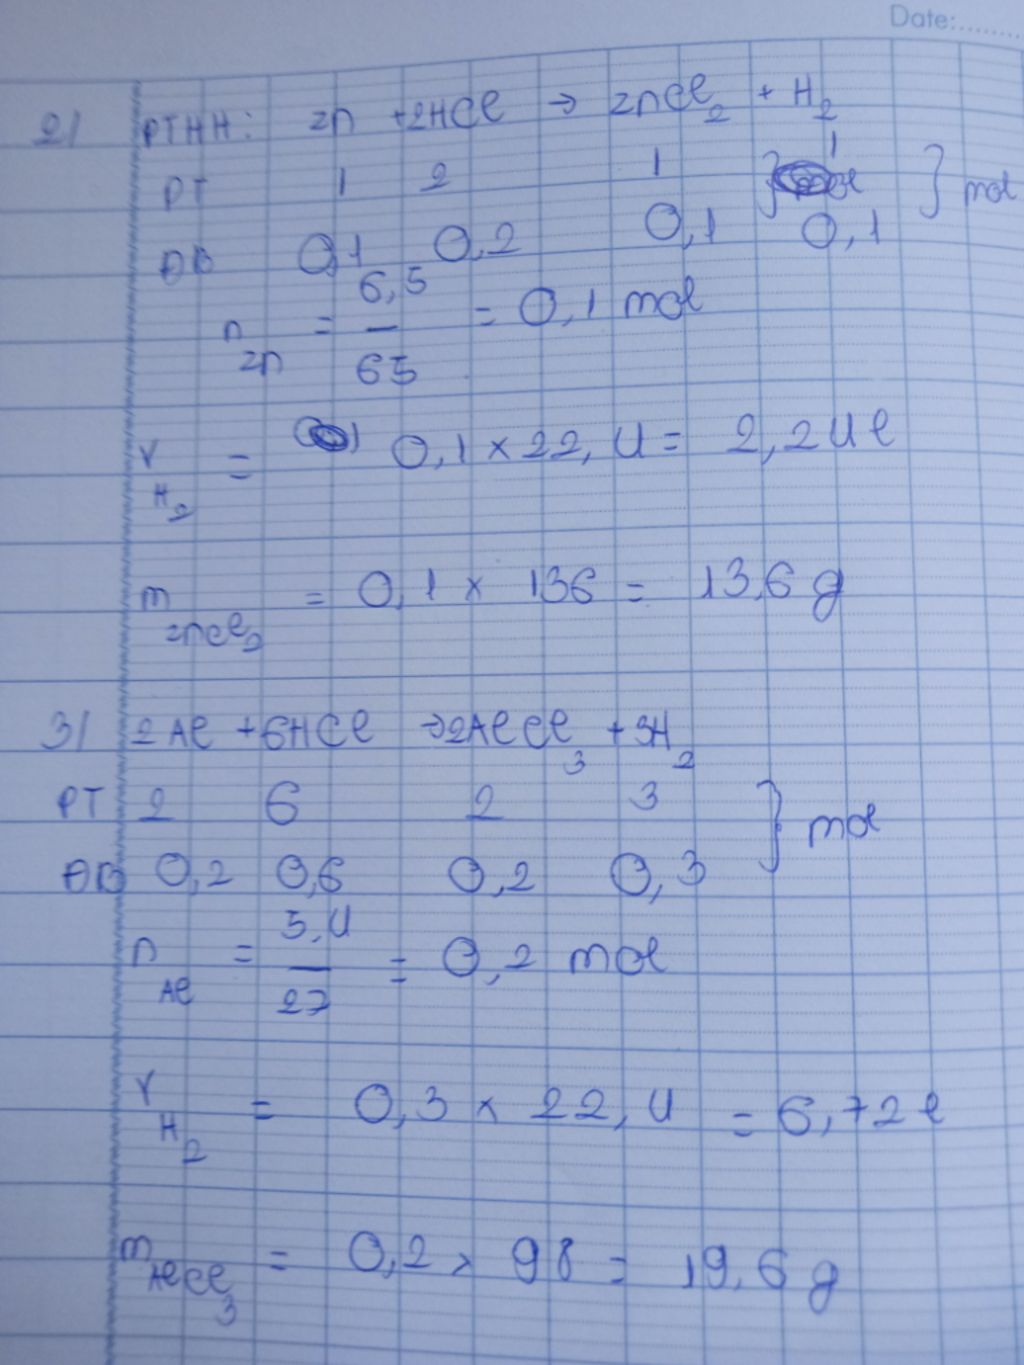 Date:........
2/ PTHH: Zn + 2HCl → ZnCl₂ + H₂
PT 1 2 1 1 } mol
ĐB 0,1 0,2 0,1 0,1
n Zn = 6,5/65 = 0,1 mol
V H₂ = 0,1 × 22,4 = 2,24 l
m ZnCl₂ = 0,1 × 136 = 13,6 g
3/ 2Al + 6HCl → 2AlCl₃ + 3H₂
PT 2 6 2 3 } mol
ĐB 0,2 0,6 0,2 0,3
n Al = 5,4/27 = 0,2 mol
V H₂ = 0,3 × 22,4 = 6,72 l
m AlCl₃ = 0,2 × 98 = 19,6 g